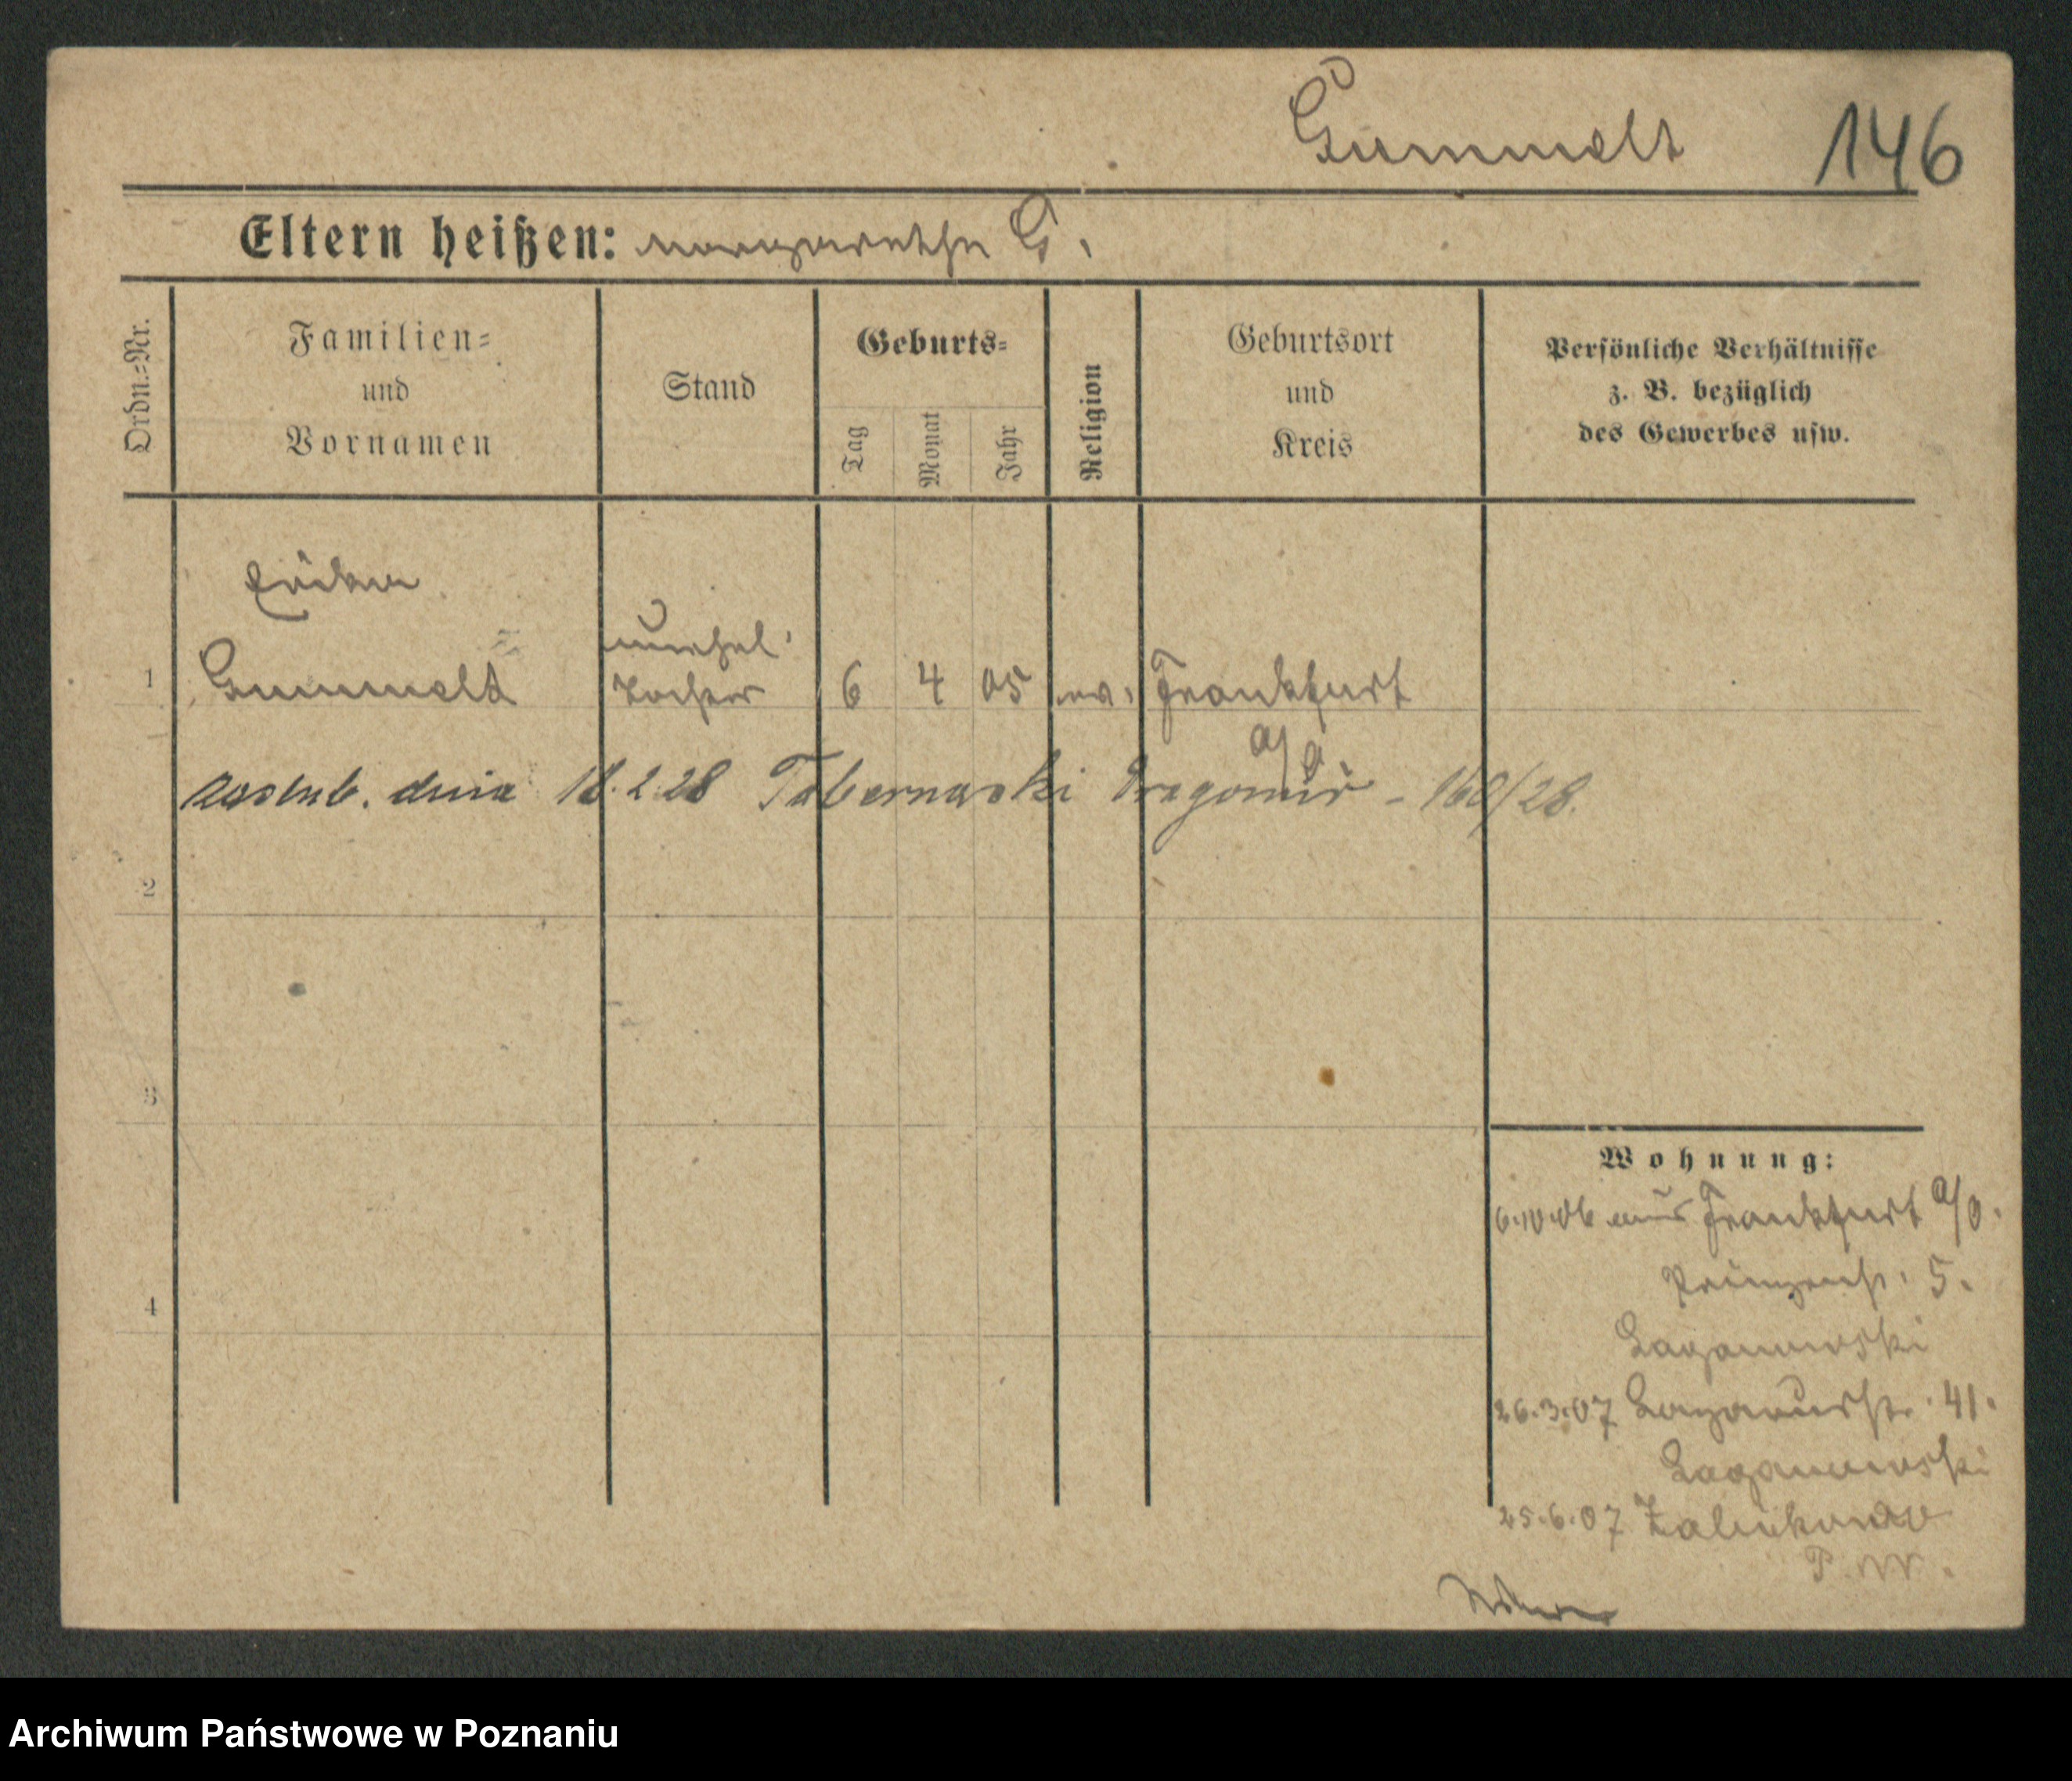 Gummelt 146
Eltern heißen: Margarethe G.
Ordn.-Nr.
Familien-
und
Vornamen
Stand
Geburts-
Tag
Monat
Jahr
Religion
Geburtsort
und
Kreis
Persönliche Verhältnisse
z. B. bezüglich
des Gewerbes usw.
unehel.
1 Gummelt Tochter 6 4 05 ev. Frankfurt
a/O
zaślub. dnia 18.2.28 Tabernacki Dragomir - 160/28.
2
3
4
Wohnung:
6.10.06 aus Frankfurt a/O.
Prinzenstr. 5.
26.3.07 41.
25.6.07 Zabikowo
P. W.
Archiwum Państwowe w Poznaniu